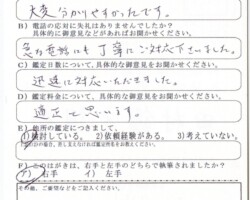 大変分かりやすかったです。
B）電話の応対に失礼はありませんでしたか？
具体的な御意見などがあればお聞かせください。
急な依頼にも丁寧にご対応下さいました。
C）鑑定日数について、具体的な御意見をお聞かせください。
迅速に対応いただきました。
D）鑑定料金について、具体的な御意見をお聞かせください。
適正と思います。
E）他所の鑑定につきまして。
1）検討している。 2）依頼経験がある。 3）考えていない。
F）このはがきは、右手と左手のどちらで執筆されましたか？
ア）右手 イ）左手
その他、ご要望などをご記入ください。